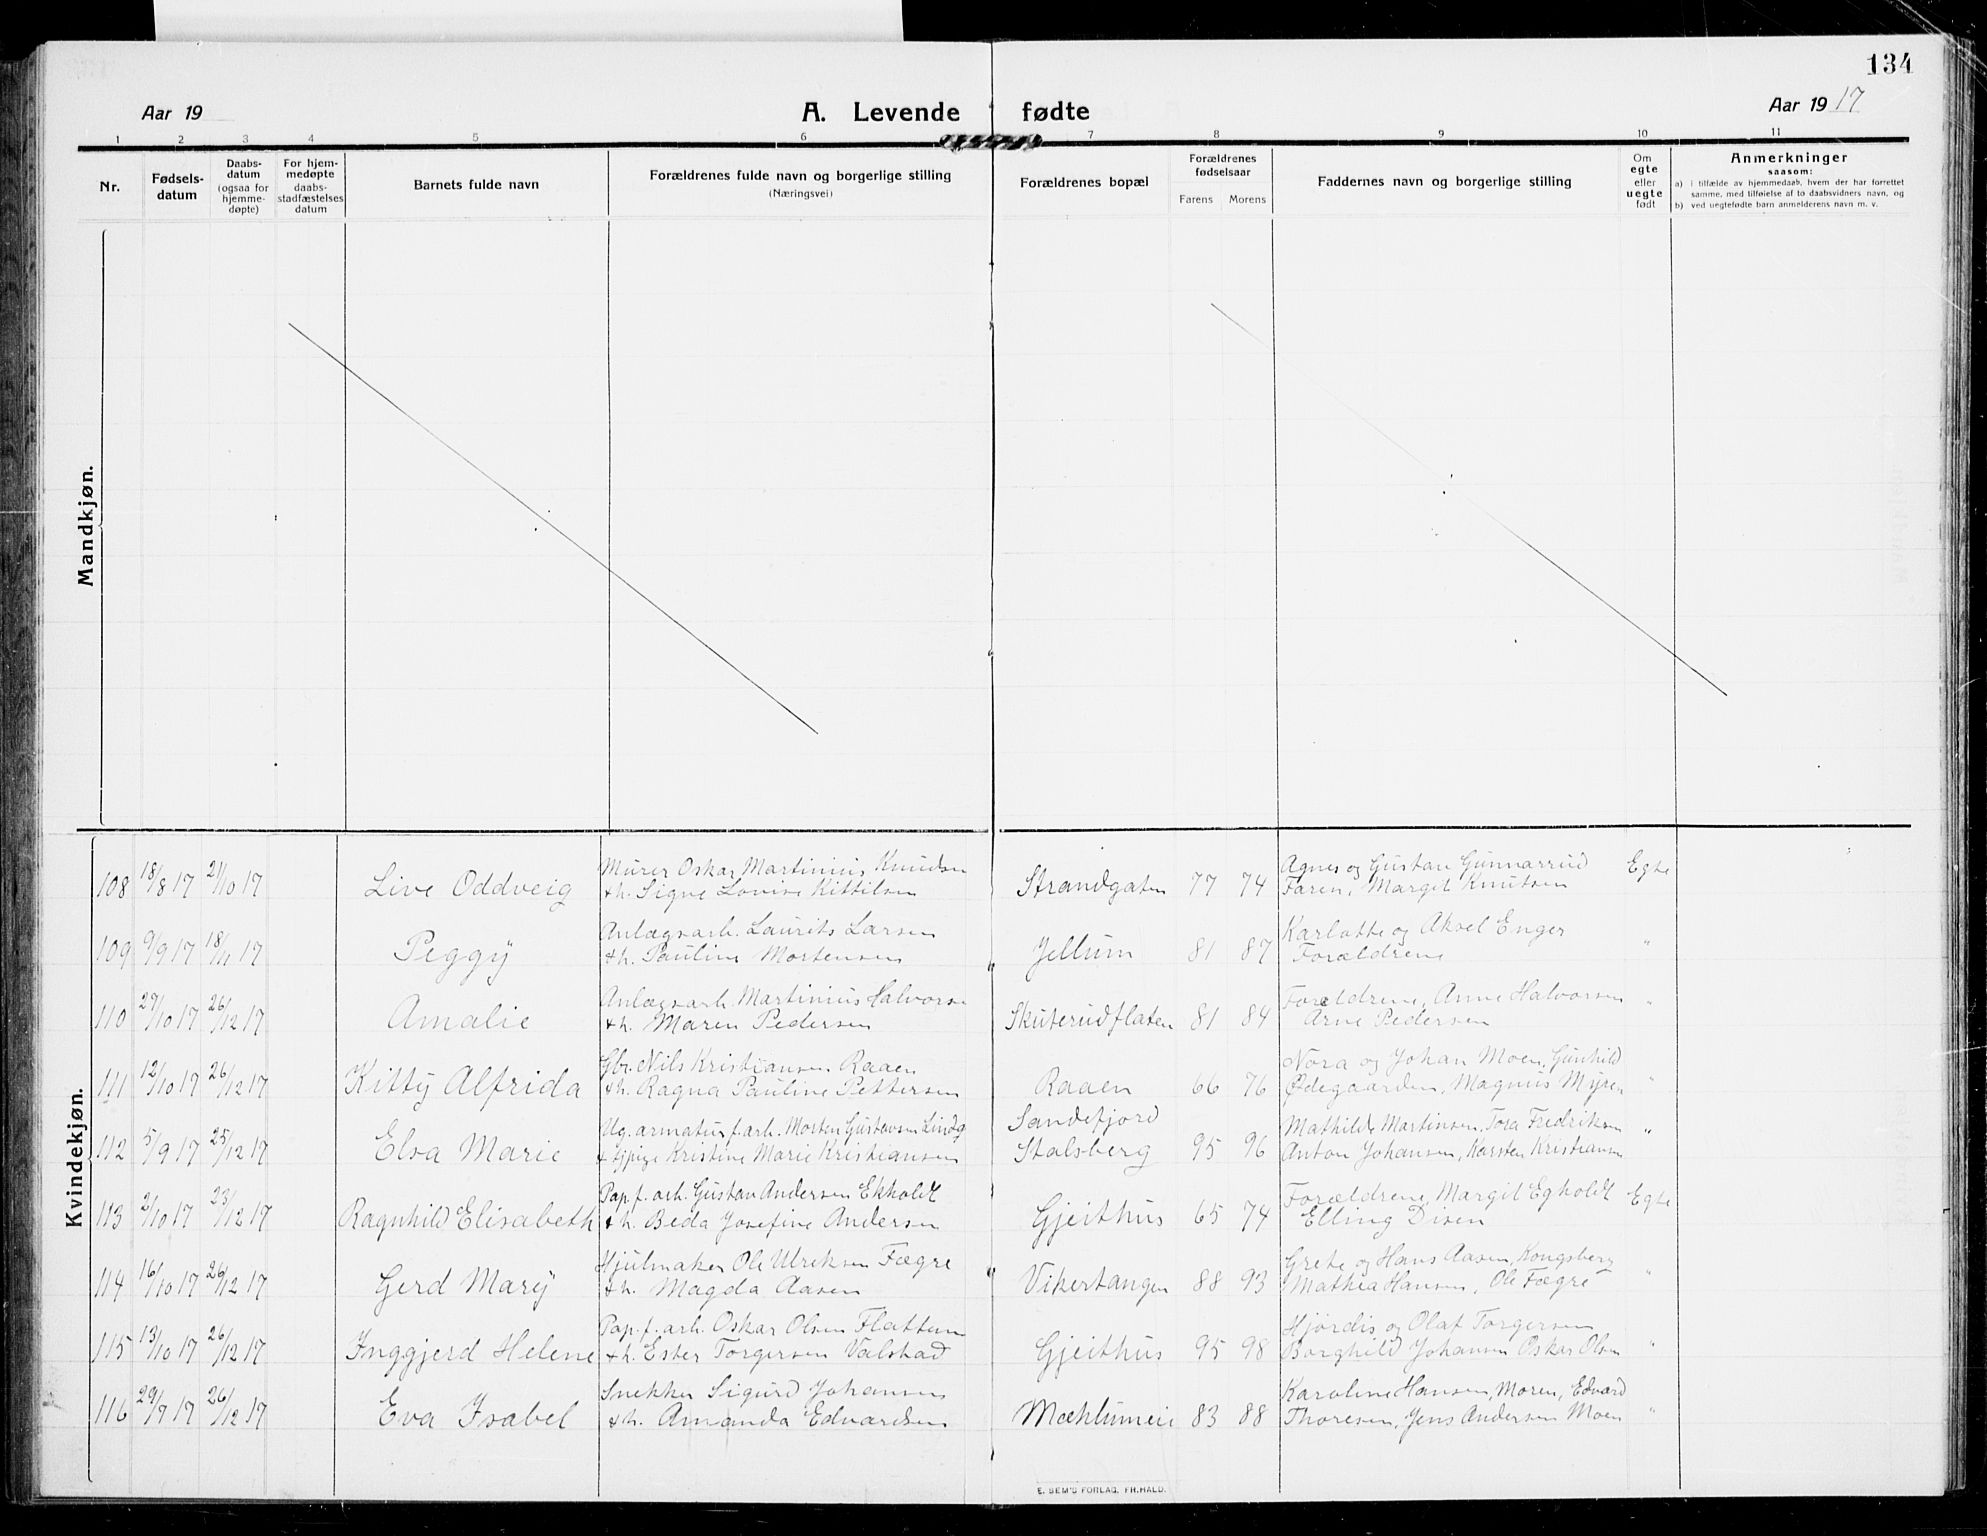 134
Aar 19
A. Levende fødte
Aar 1917
1 2 3 4 5 6 7 8 9 10 11
Nr.
Fødsels-
datum
Daabs-
datum
(ogsaa for
hjemme-
døpte)
For hjem-
medøpte
daabs-
stadfæstelses
datum
Barnets fulde navn
Forældrenes fulde navn og borgerlige stilling
(Næringsvei)
Forældrenes bopæl
Forældrenes
fødselsaar
Farens Morens
Faddernes navn og borgerlige stilling
Om
egte
eller
uegte
født
Anmerkninger
saasom:
a) i tilfælde av hjemmedaab, hvem der har forrettet
samme, med tilføielse af to daabsvidners navn, og
b) ved uegtefødte barn anmelderens navn m. v.
Mandkjøn.
Kvindekjøn.
108 18/8 17 21/10 17 Live Oddveig Murer Oskar Martinius Knudsen Strandgaten 77 74 Agnes og Gustav Gunnarrud Egte
+h. Signe Lovise Kittilsen Faren, Margit Knutsen
109 9/9 17 18/11 17 Peggy Anlægsarb. Laurits Larsen Jellum 81 87 Karlotte og Aksel Enger "
+h. Pauline Mortensen Forældrene
110 29/10 17 26/12 17 Amalie Anlægsarb. Martinius Halvorsen Skuterudflaten 81 84 Forældrene, Anne Halvorsen "
+h. Maren Pedersen Arne Pedersen
111 12/10 17 26/12 17 Kitty Alfrida Gbr. Nils Kristiansen Raaen Raaen 66 76 Nora og Johan Moen, Gunhild
+h. Ragna Pauline Pettersen Ødegaarden, Magnus Myren "
112 5/9 17 25/12 17 Elsa Marie Ug. armatur f. arb. Morten Gustavsen Lindg Sandefjord 95 Mathilde Martinsen, Tora Fredriksen "
+ pige Kristine Marie Kristiansen Stalsberg 96 Anton Johansen, Karsten Kristiansen
113 2/10 17 23/12 17 Ragnhild Elisabeth Pap. f. arb. Gustav Andersen Ekholdt Gjeithus 65 74 Forældrene, Margit Egholdt Egte
+h. Beda Josefine Andersen Elling Disen
114 16/10 17 26/12 17 Gerd Mary Hjulmaker Ole Ulriksen Fægre Vikertangen 88 93 Grete og Hans Aasen, Kongsberg
+h. Magda Aasen Mathea Hansen, Ole Fægre "
115 13/10 17 26/12 17 Inggjerd Helene Pap. f. arb. Oskar Olsen Flattum Gjeithus 95 98 Hjørdis og Olaf Torgersen
+h. Ester Torgersen Valstad Borghild Johansen Oskar Olsen "
116 29/7 17 26/12 17 Eva Isabel Snekker Sigurd Johansen Mæhlumeie 83 88 Karoline Hansen, Moren, Edvard
+h. Amanda Edvardsen Thoresen, Jens Andersen Moen "
E. SEM'S FORLAG, FR.HALD.